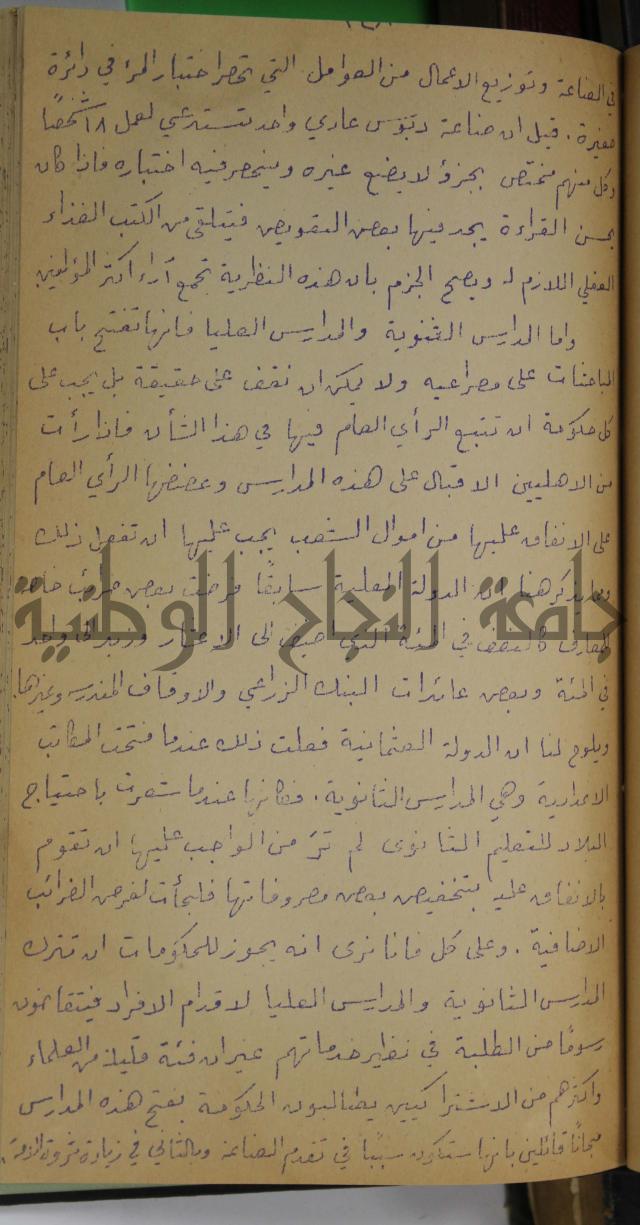 في الصناعة وتوزيع الاعمال من العوامل التي تحصر اختبار المرء في دائرة
صغيرة. قيل ان صناعة دبّوس عادي واحد تستدعي لعمل ١٨ شخصًا
وكل منهم مختص بجزؤ لا يصنع غيره وينحصر فيه اختباره فاذا كان
يحسن القراءة يجد فيها بعض التعويض فيتلقى من الكتب الغذاء
العقلي اللازم له ويصح الجزم بان هذه النظرية تجمع آراء اكثر المؤلفين
واما المدارس الثنوية والمدارس العليا فانها تفتح باب
المباحثات على مصراعيه ولا يمكن ان نقف على حقيقة بل يجب على
كل حكومة ان تتبع الرأي العام فيها في هذا الشأن فاذا رأت
من الاهليين الاقبال على هذه المدارس وعضضها الرأي العام
على الانفاق عليها من اموال الشعب يجب عليها ان تفعل ذلك
ومما يذكر هنا ان الدولة العلية سابقًا فرضت بعض ضرائب خاصة
للمعارف كالنصف في المئة الذي اضيف الى الاعشار وربع الواحد
في المئة وبعض عائدات البنك الزراعي والاوقاف المندرسة وغيرها.
ويلوح لنا ان الدولة العثمانية فعلت ذلك عندما فتحت المكاتب
الاعدادية وهي المدارس الثانوية. فكانها عندما شعرت باحتياج
البلاد للتعليم الثانوي لم ترَ من الواجب عليها ان تقوم
بالانفاق عليه بتخفيض بعض مصروفاتها فلجأت لفرض الضرائب
الاضافية. وعلى كل فانا نرى انه يجوز للحكومات ان تترك
المدارس الثانوية والمدارس العليا لاقدام الافراد فيتقاضون
رسومًا من الطلبة في نظير خدماتهم غير ان فئة قليلة من العلماء
واكثرهم من الاشتراكيين يطالبون الحكومة بفتح هذه المدارس
مجانًا قائلين بانها ستكون سببًا في تقدم الصناعة وبالتالي في زيادة ثروة الامة.
جامعة النجاح الوطنية